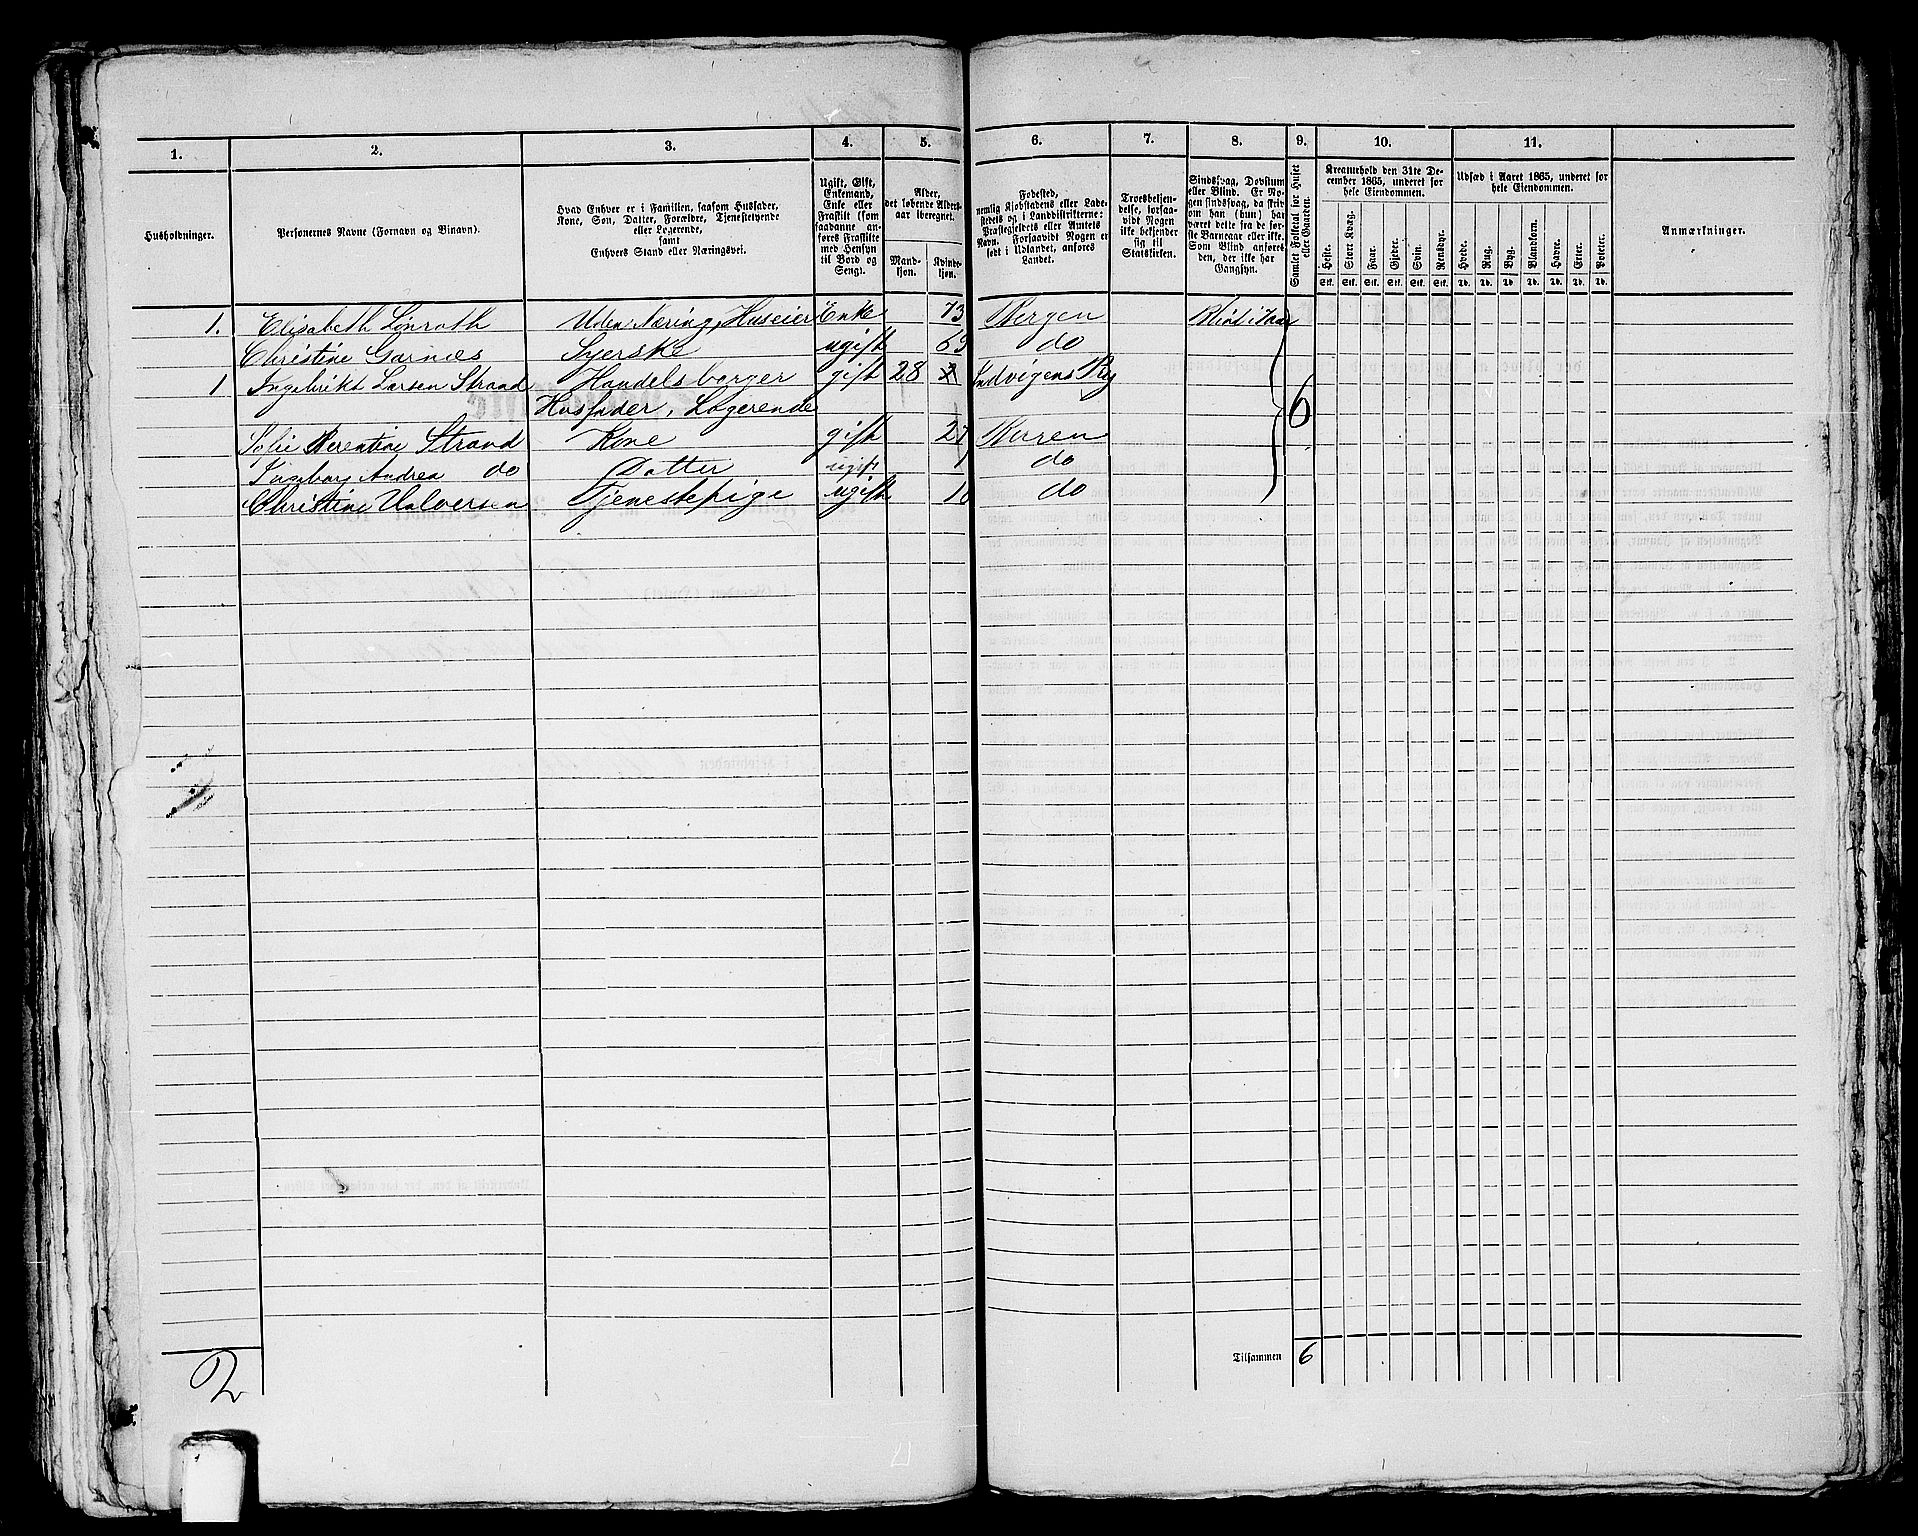 1. 2. 3. 4. 5. 6. 7. 8. 9. 10. 11.
Husholdninger.
Personernes Navne (Fornavn og Binavn).
Hvad Enhver er i Familien, saasom Husfader,
Kone, Søn, Datter, Forældre, Tjenestetyende
eller Logerende,
samt
Enhvers Stand eller Næringsvei.
Ugift, Gift,
Enkemand,
Enke eller
Fraskilt (som
saadanne an-
føres Fraskilte
med Hensyn
til Bord og
Seng).
Alder,
det løbende Alders-
aar iberegnet.
Mand-
kjøn.
Kvinde-
kjøn.
Fødested,
nemlig Kjøbstadens eller Lade-
stedets og i Landdistrikterne:
Præstegjeldets eller Amtets
Navn. Forsaavidt Nogen er
født i Udlandet, anføres
Landet.
Troesbekjen-
delse, forsaa-
vidt Nogen
ikke bekjender
sig til
Statskirken.
Sindssvag, Døvstum
eller Blind. Er No-
gen sindssvag, da skriv
om han (hun) har
været dette fra de før-
ste Barneaar eller ikke.
Som Blind anføres
den, der ikke har
Gangsyn.
Samlet Folketal for Huset
eller Gaarden.
Kreaturhold den 31te De-
cember 1865, underet for
hele Eiendommen.
Heste. Stort Kvæg. Faar. Gjeder. Sviin. Rensdyr.
Stk. Stk. Stk. Stk. Stk. Stk.
Udsæd i Aaret 1865, underet for
hele Eiendommen.
Hvede. Rug. Byg. Blandkorn. Havre. Erter. Poteter.
Td. Td. Td. Td. Td. Td. Td.
Anmærkninger.
1. Elisabeth Lönroth Uden Næring, Huseier Enke 73 Bergen Blind
Christine Garnæs Syerske ugift do
1 Ingebrikt Larsen Strand Handelsborger gift 28 Indvigens
Husfader, Logerende 6
Berentine Strand Kone gift 27
Ingeborg Andrea do Datter ugift do
Christine Halvorsen Tjenestepige ugift do
Tilsammen 6
2